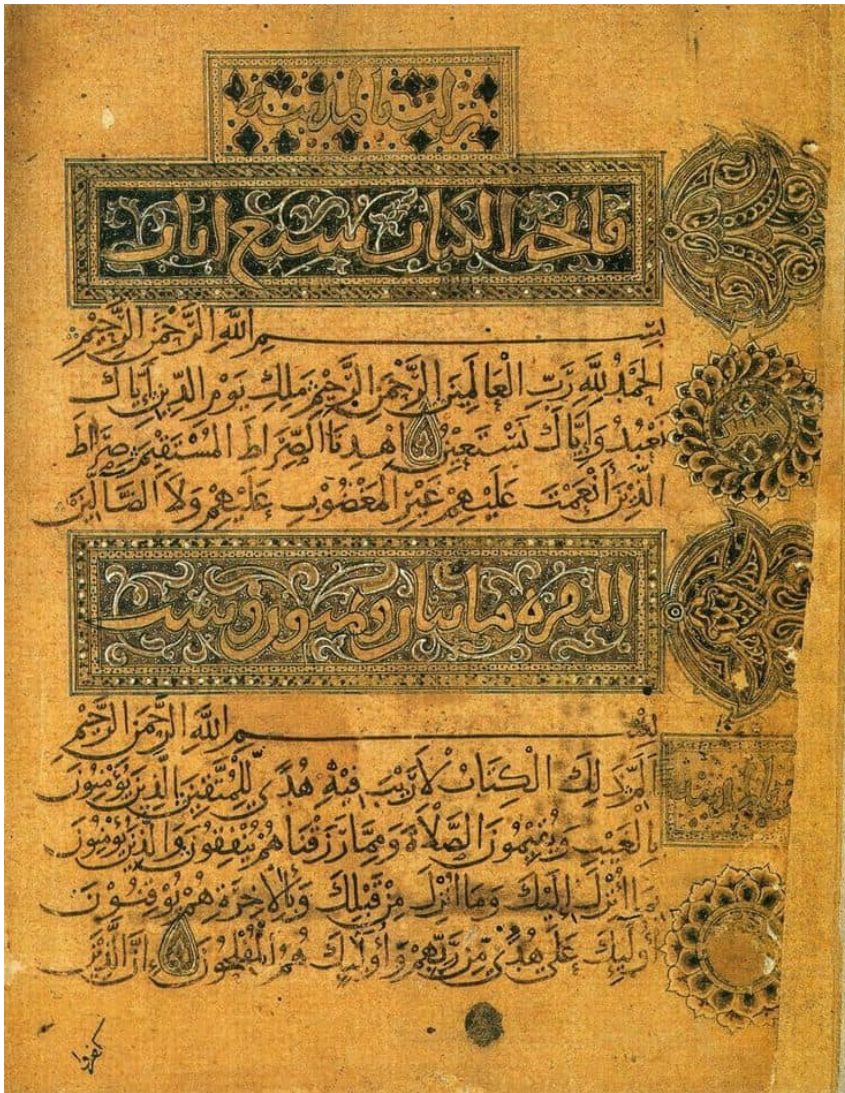 نزلت بالمدينة
فاتحة الكتاب سبع ايات
بِسْمِ اللَّهِ الرَّحْمَنِ الرَّحِيْمِ
الْحَمْدُ لِلَّهِ رَبِّ الْعَالَمِيْنَ الرَّحْمَنِ الرَّحِيْمِ مَلِكِ يَوْمِ الدِّيْنِ إِيَّاكَ
نَعْبُدُ وَإِيَّاكَ نَسْتَعِيْنُ اِهْدِنَا الصِّرَاطَ الْمُسْتَقِيْمَ صِرَاطَ
الَّذِيْنَ أَنْعَمْتَ عَلَيْهِمْ غَيْرِ الْمَغْضُوْبِ عَلَيْهِمْ وَلَا الضَّالِّيْنَ
البقرة مايتان وثمنون وست
بِسْمِ اللَّهِ الرَّحْمَنِ الرَّحِيْمِ
الَمّ ذَلِكَ الْكِتَابُ لَا رَيْبَ فِيْهِ هُدًى لِّلْمُتَّقِيْنَ الَّذِيْنَ يُؤْمِنُوْنَ
بِالْغَيْبِ وَيُقِيْمُوْنَ الصَّلَاةَ وَمِمَّا رَزَقْنَاهُمْ يُنْفِقُوْنَ وَالَّذِيْنَ يُؤْمِنُوْنَ
بِمَا أُنْزِلَ إِلَيْكَ وَمَا أُنْزِلَ مِنْ قَبْلِكَ وَبِالْآخِرَةِ هُمْ يُوْقِنُوْنَ
أُولَئِكَ عَلَى هُدًى مِّنْ رَبِّهِمْ وَأُولَئِكَ هُمُ الْمُفْلِحُوْنَ إِنَّ الَّذِيْنَ
كفروا